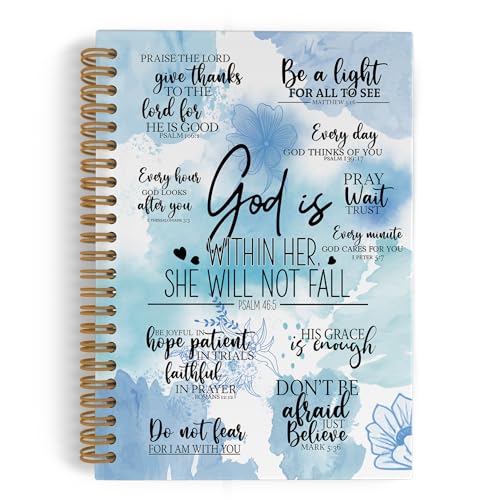 PRAISE THE LORD
give thanks
TO THE
lord for
HE IS GOOD
PSALM 106:1
Be a light
FOR ALL TO SEE
MATTHEW 5:16
Every day
GOD THINKS OF YOU
PSALM 139:17
Every hour
GOD LOOKS
after you
2 THESSALONIANS 3:3
God is
WITHIN HER,
SHE WILL NOT FALL
PSALM 46:5
PRAY
Wait
TRUST
Every minute
GOD CARES FOR YOU
1 PETER 5:7
BE JOYFUL IN
hope patient
IN TRIALS
faithful
IN PRAYER
ROMANS 12:12
HIS GRACE
is enough
DON'T BE
afraid
JUST
Believe
MARK 5:36
Do not fear
FOR I AM WITH YOU